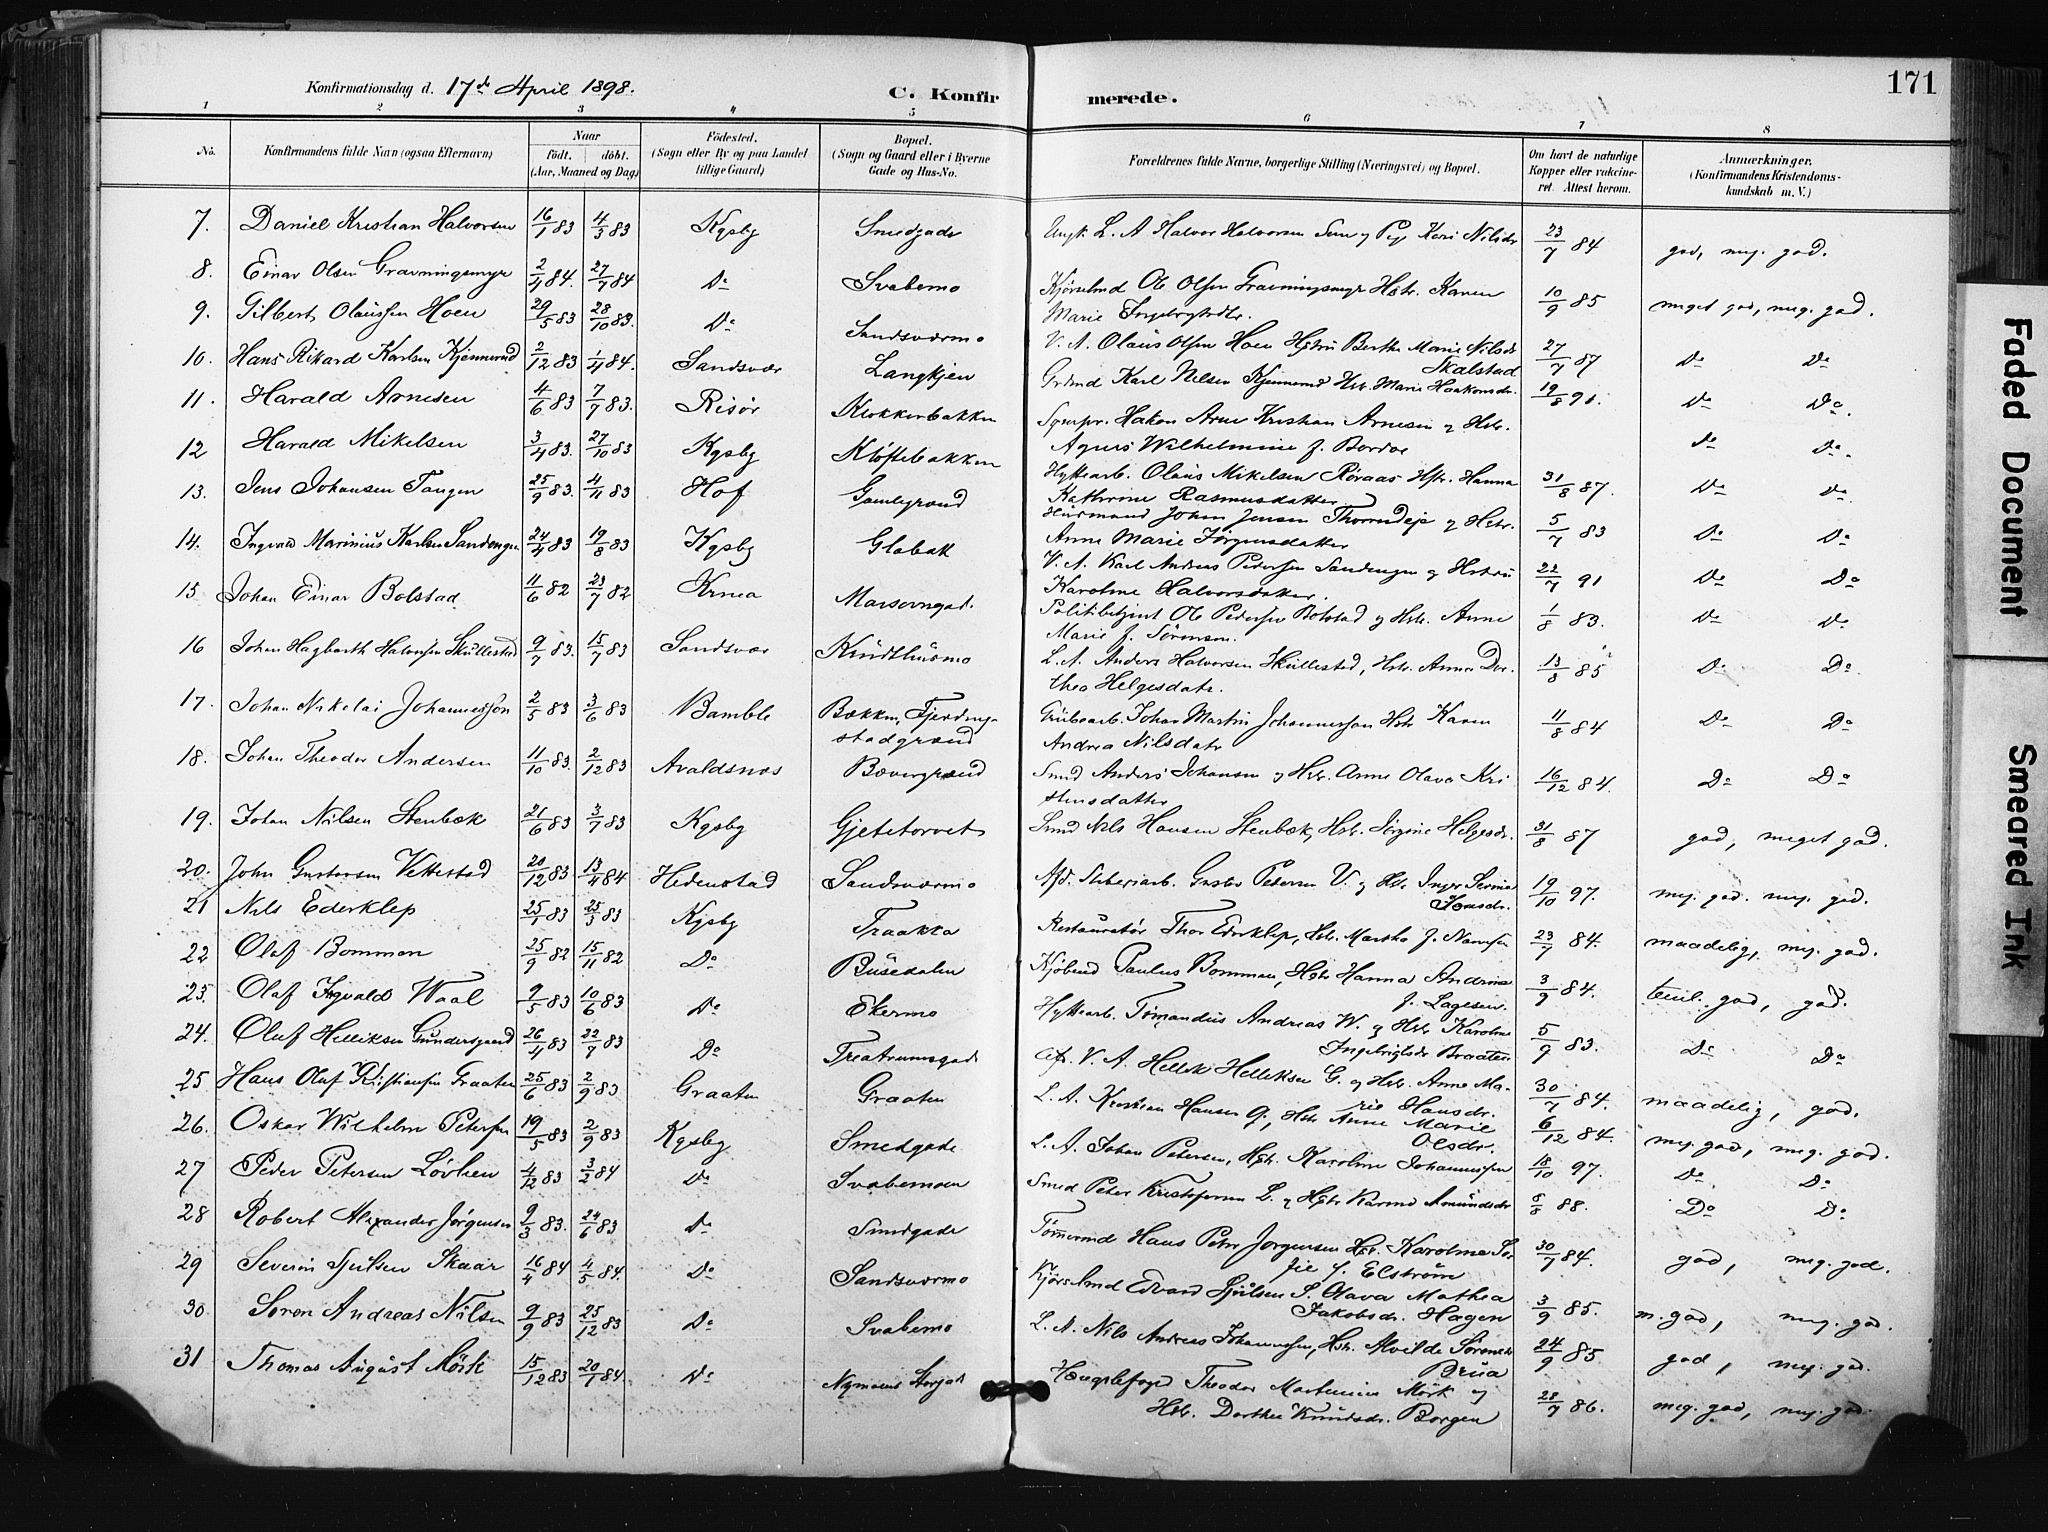 Konfirmationsdag d. 17de April 1898. C. Konfirmerede. 171
1 2 3 4 5 6 7 8
No. Konfirmandens fulde Navn (ogsaa Efternavn) Naar födt. döbt. (Aar, Maaned og Dag) Födested. (Sogn eller By og paa Landet tillige Gaard) Bopæl. (Sogn og Gaard eller i Byerne Gade og Hus-No. Forældrenes fulde Navne, borgerlige Stilling (Næringsvei) og Bopæl. Om havt de naturlige Kopper eller vaccineret. Attest herom. Anmærkninger. (Konfirmandens Kristendomskundskab m. V.)
7. Daniel Kristian Halvorsen 16/1 83 4/3 83 Kgsby Smedgade Ungk. L. A Halvor Halvorsen Sem og Pige Kari Nilsdr 23/7 84 god, meg. god.
8. Einar Olsen Gravningsmyr 2/4 84. 27/7 84 Do Svabemo Kjörselmd Ole Olsen Gravningsmyr Hstr. Karen
Marie Ingebrigtsdtr. 10/9 85 meget god, meg. god.
9. Gilbert Olaussen Hoen 29/5 83 28/10 83. Do Sandsværmo V. A. Olaus Olsen Hoen Hstru Berthe Marie Nilsdr
Skalstad 27/7 87 Do Do
10. Hans Rikard Karlsen Kjennerud 2/12 83 1/4 84. Sandsvær Langkjen Grdmd Karl Nilsen Kjennerud Hstr. Marie Haakonsdr. 19/8 91. Do Do.
11. Harald Arnesen 4/6 83 7/7 83. Risör Klokkerbakken Hakon Arne Kristian Arnesen og Hstr.
Agnes Wilhelmine f. Do Do.
12 Harald Mikelsen 3/4 83. 27/10 83 Kgsby Klöftebakken Hyttearb. Olaus Mikelsen Röraas Hstr. Hanna
Kathrine Rasmusdatter 31/8 87. Do Do
13. Jens Johansen Tangen 25/9 83. 4/11 83 Hof Gamlegrænd Husmand Johan Jensen og Hstr.
Anne Marie Jörgensdatter 5/7 83 Do Do
14. Ingvald Marinius Karlsen Sandengen 24/4 83 19/8 83 Kgsby Glabak V. A. Karl Andreas Pedersen Sandengen og Hstru
Karoline Halvorsdatter. 22/7 91 Do Do
15 Johan Einar Bolstad 11/6 82 23/7 82 Krnea Politibetjent Ole Pedersen Bolstad og Hstr. Anne
Marie f. Sörensen. 1/8 83. Do Do
16 Johan Hagbarth Halvorsen Skullestad 9/7 83. 15/7 83 Sandsvær Knudthusmo L. A. Anders Halvorsen Skullestad, Hstr. Anne Dorthea
Helgesdatr. 13/8 85 Do Do
17. Johan Nikolai Johannessön 2/5 83 3/6 83 Bamble Bækken, Fjerdingstadgrænd
Grubearb. Johan Martin Johannessön Hstr Karen
Andrea Nilsdatr 11/8 84 Do Do
18. Johan Theodor Andersen 11/10 83. 2/12 83 Avaldsnes Bævergrænd Smed Anders Johansen og Hstr. Anne Olava Kristensdatter
16/12 84. Do Do
19. Johan Nilsen Stenbæk 21/6 83 3/7 83 Kgsby Gjetetorvet Smed Nils Hansen Stenbæk, Hstr. Jörgine Helgesdr. 31/8 87 god, meget god.
20. John Gustavsen Vettestad 20/12 83 13/4 84 Hedenstad Sandsværmo Afd. Gustav Petersen V. og Hstr. Inger Serina
Jonsdr. 19/10 97. meg. god. meg. god.
21 Nils Ederklep 25/1 83 25/3 83 Kgsby Traakka Restauratör Thor Ederklep, Hstr. Martha f. Nansen 23/7 84. maadelig, meg. god.
22 Olaf Bommen 25/9 82 15/11 82 Do Busedalen Kjöbmd Paulus Bommen, Hstr Hanna Andrine
f. Lagesen. 3/9 84. teml. god, god.
23. Olaf Ingvald Waal 9/5 83 10/6 83 Do Ekermo Hyttearb. Tomandus Andreas W. og Hstr. Karoline
Ingebrigtsdr Braaten 5/9 83. Do Do
24. Oluf Helliksen Gundersgaard 26/4 83 22/7 83 Do Treatrumsgade V. A. Hellik Helliksen G. og Hstr. Anne Marie
Hansdr. 30/7 84. maadelig, god.
25 Hans Olaf Kristiansen Graaten 25/6 83 2/9 83 Graaten Graaten L. A. Kristian Hansen G, Hstr Anne Marie
Olsdr. 6/12 84. meg. god, meg. god.
26. Oskar Wilhelm Petersen 19/5 83 2/9 83 Kgsby Smedgade L. A. Johan Petersen, Hstr. Karoline Johannessen 18/10 97. Do Do
27 Peder Petersen Lövlien 4/12 83 3/2 84 Do Svabemoen Smed Peter Kristofersen L. og Hstr Karine Amundsdr 5/8 88. Do Do
28 Robert Alexander Jörgensen 9/3 83. 24/6 83 Do Smedgade Tömmermd Hans Peter Jörgensen Hstr. Karoline Sofie
f. Elström 30/7 84. god, meg. god.
29 Severin Sjulsen Skaar 16/4 84 4/5 84. Do Sandsværmo Kjörselmd Edvard Sjulsen S. Olava Mathea
Jakobsdr. Hagen 3/9 85. m. god, meg. god.
30. Sören Andreas Nilsen 9/9 83 25/12 83 Do Svabemo L. A. Nils Andreas Johannessen, Hstr. Alvilde Sörensdr
Brua 24/9 85 god, meg. god.
31 Thomas August Mörk 15/12 83 20/1 84 Do Nymoens Storgade Theodor Martinius Mörk og
Hstr. Dorthea Knudsdr. Borgen 28/7 86. meg. god, meg. god.
Faded Document
Smeared Ink